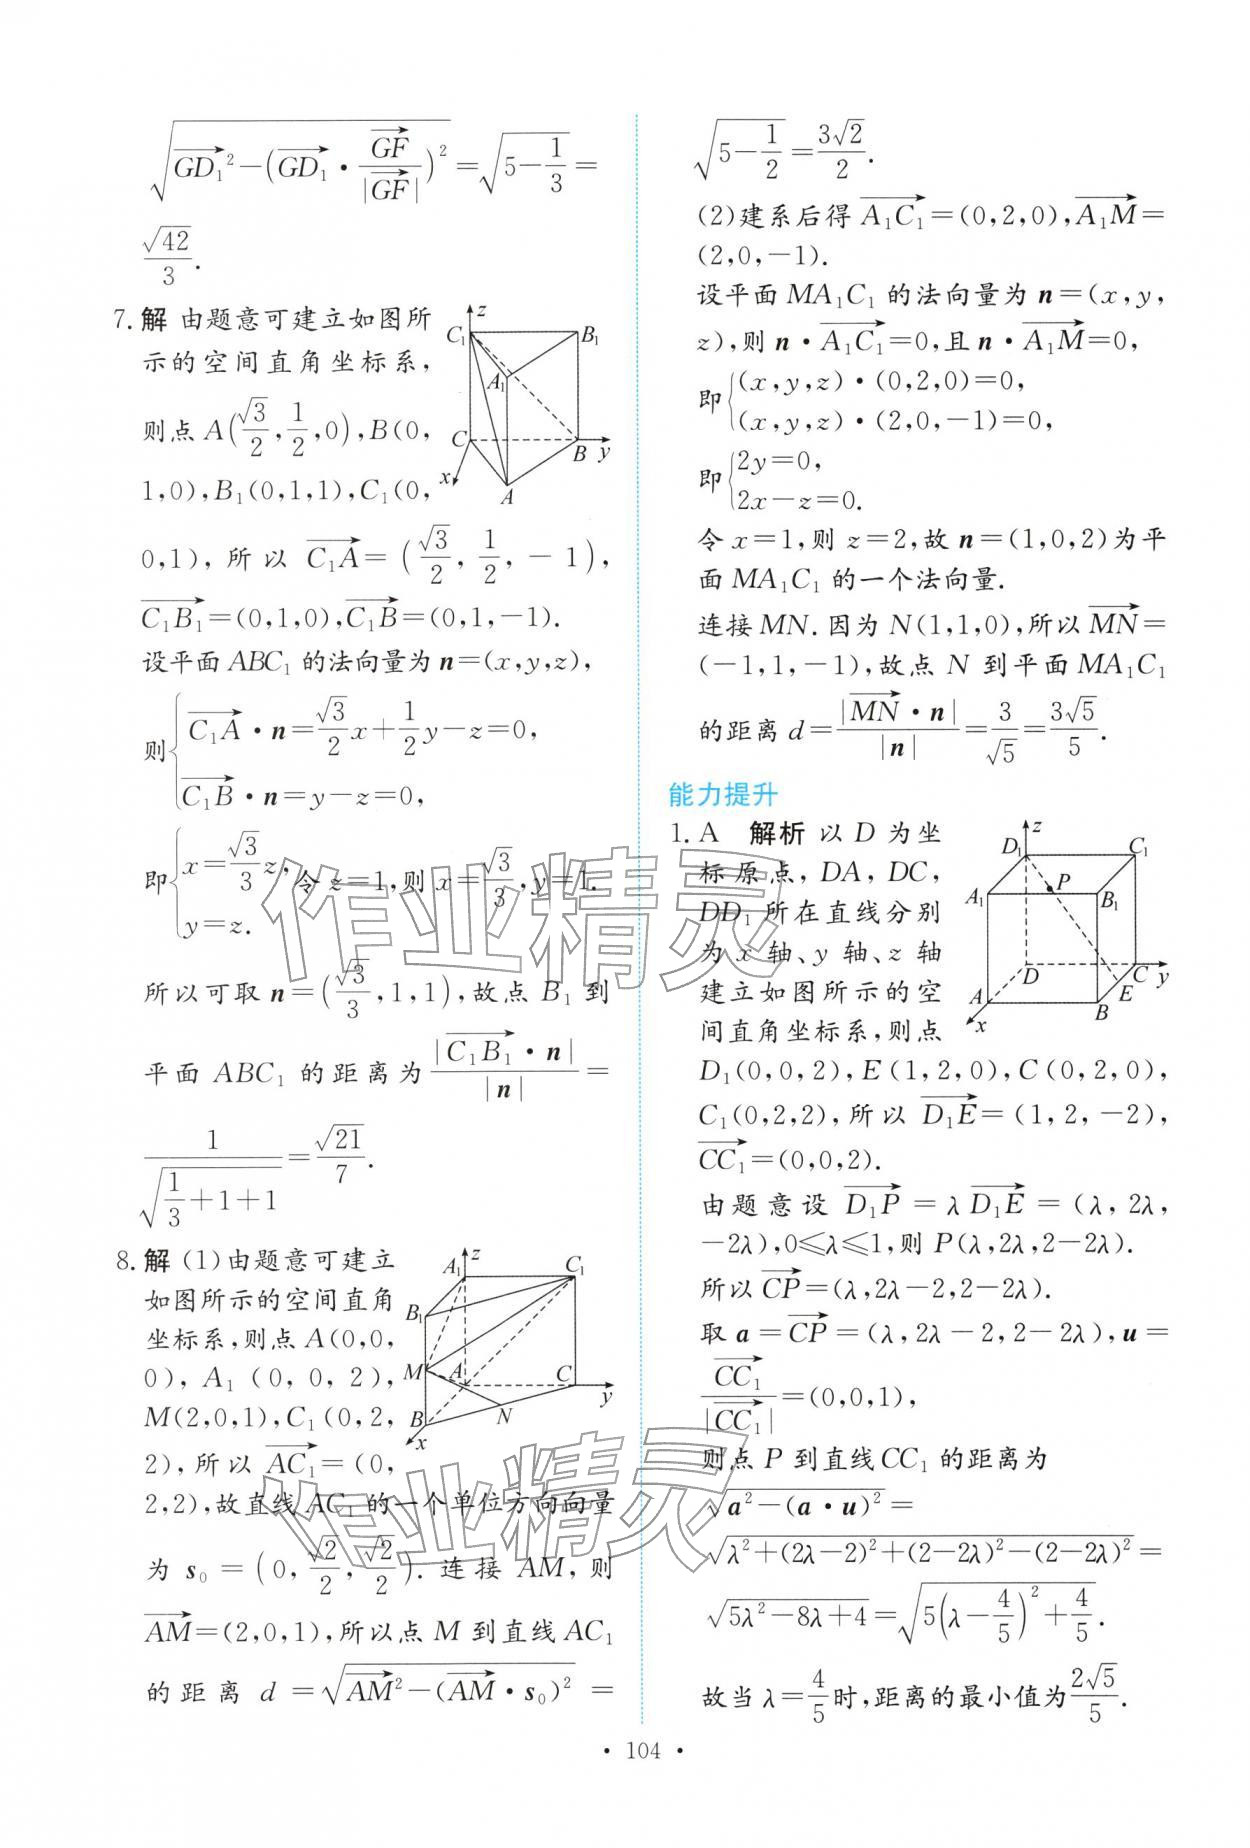 √(GD₁²−(GD₁·GF/|GF|)²)=√(5−1/3)=
√42/3.
7.解 由题意可建立如图所
示的空间直角坐标系,
则点A(√3/2,1/2,0),B(0,
1,0),B₁(0,1,1),C₁(0,
0,1),所以 C₁A=(√3/2,1/2,-1),
C₁B₁=(0,1,0),C₁B=(0,1,-1).
设平面ABC₁的法向量为n=(x,y,z),
则{C₁A·n=√3/2x+1/2y-z=0,
C₁B·n=y-z=0,
即{x=√3/3z,
y=z.
令z=1,则x=√3/3,y=1.
所以可取n=(√3/3,1,1),故点B₁到
平面ABC₁的距离为|C₁B₁·n|/|n|=
1/√(1/3+1+1)=√21/7.
z
C₁
B₁
A₁
C
B
y
x
A
8.解 (1)由题意可建立
如图所示的空间直角
坐标系,则点A(0,0,
0),A₁(0,0,2),
M(2,0,1),C₁(0,2,
2),所以AC₁=(0,
2,2),故直线AC₁的一个单位方向向量
为s₀=(0,√2/2,√2/2).连接AM,则
AM=(2,0,1),所以点M到直线AC₁
的距离d=√(AM²−(AM·s₀)²)=
z
A₁
C₁
B₁
M
A
C
y
B
N
x
√(5−1/2)=3√2/2.
(2)建系后得A₁C₁=(0,2,0),A₁M=
(2,0,-1).
设平面MA₁C₁的法向量为n=(x,y,
z),则n·A₁C₁=0,且n·A₁M=0,
即{(x,y,z)·(0,2,0)=0,
(x,y,z)·(2,0,-1)=0,
即{2y=0,
2x-z=0.
令x=1,则z=2,故n=(1,0,2)为平
面MA₁C₁的一个法向量.
连接MN.因为N(1,1,0),所以MN=
(-1,1,-1),故点N到平面MA₁C₁
的距离d=|MN·n|/|n|=3/√5=3√5/5.
能力提升
1.A 解析 以D为坐
标原点,DA,DC,
DD₁所在直线分别
为x轴、y轴、z轴
建立如图所示的空
间直角坐标系,则点
D₁(0,0,2),E(1,2,0),C(0,2,0),
C₁(0,2,2),所以D₁E=(1,2,-2),
CC₁=(0,0,2).
由题意设D₁P=λD₁E=(λ,2λ,
-2λ),0≤λ≤1,则P(λ,2λ,2-2λ).
所以CP=(λ,2λ-2,2-2λ).
取a=CP=(λ,2λ-2,2-2λ),u=
CC₁/|CC₁|=(0,0,1),
则点P到直线CC₁的距离为
√(a²-(a·u)²)=
√(λ²+(2λ-2)²+(2-2λ)²-(2-2λ)²)=
√(5λ²-8λ+4)=√(5(λ-4/5)²+4/5).
故当λ=4/5时,距离的最小值为2√5/5.
z
D₁
C₁
P
A₁
B₁
D
C
y
E
A
B
x
作业精灵
作业精灵
·104·